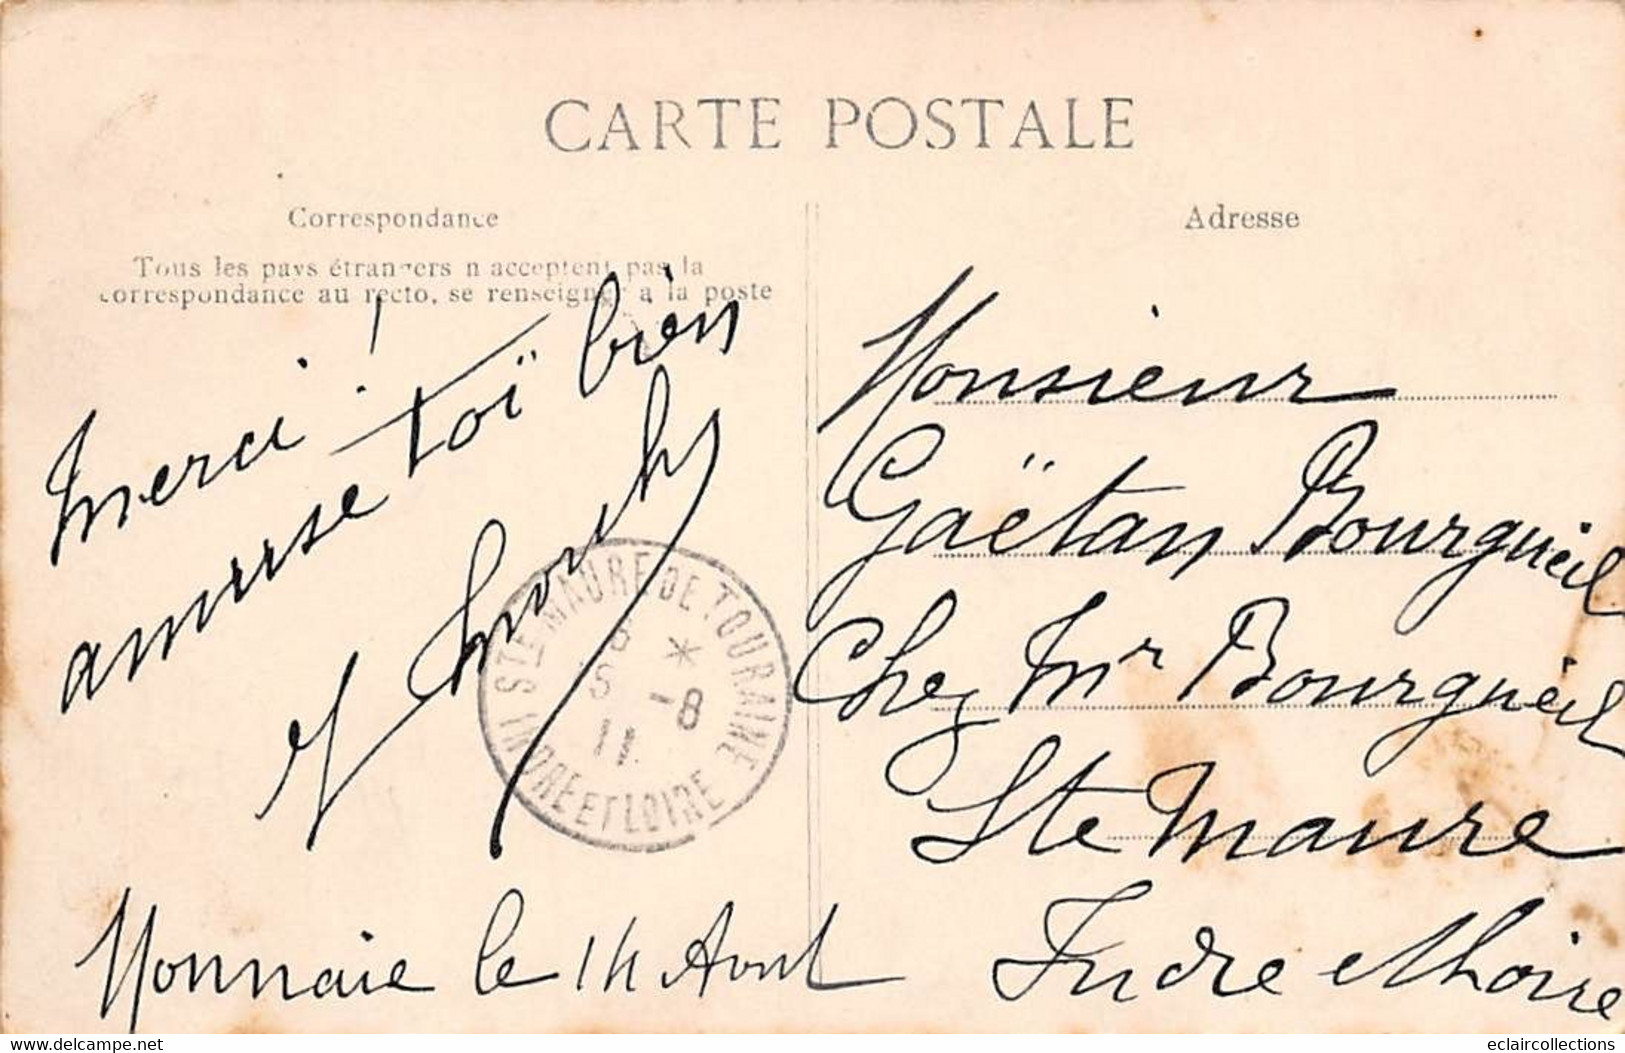 CARTE POSTALE
Correspondance
Tous les pays étrangers n'acceptent pas la
correspondance au recto, se renseigner à la poste
Merci !
amuse toï bïen
Monnaie le 14 Aout
STE MAURE DE TOURAINE
* -8
11
INDRE ET LOIRE
Adresse
Monsieur
Gaëtan Bourgueil
Chez Mr Bourgueil
Ste Maure
Indre et Loire
eclaircollections
www.delcampe.net